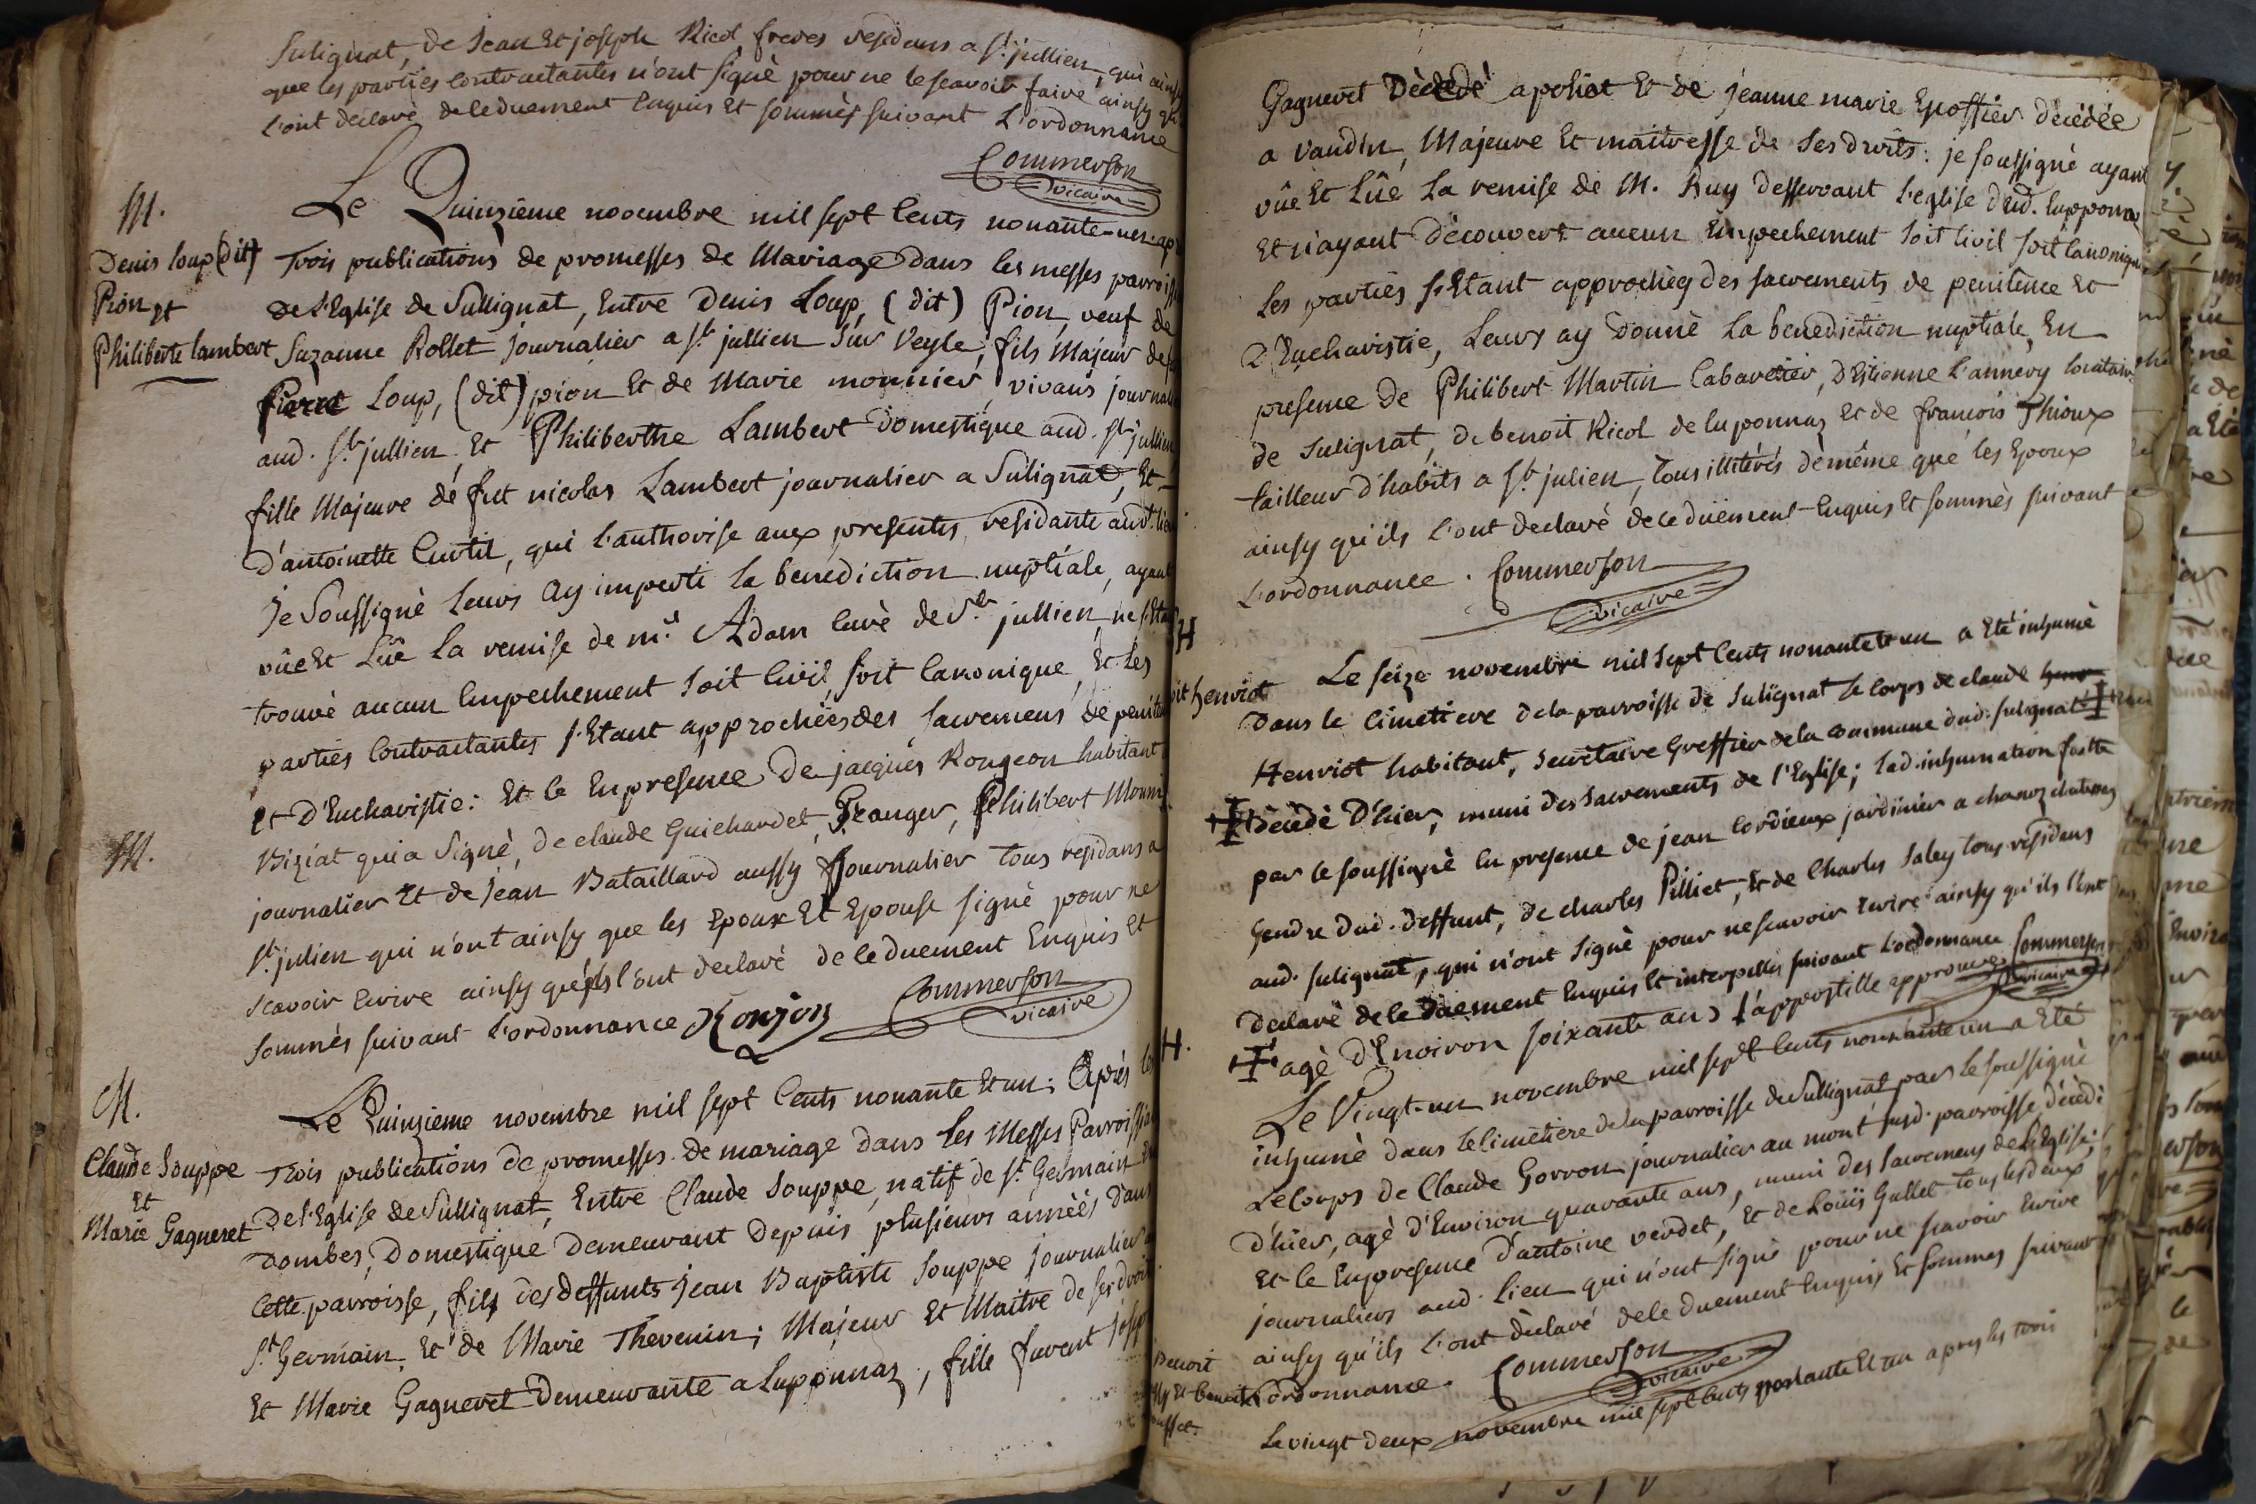 Sulignat, de Jean Et joseph Ricol freres residans a st. jullien, qui ainsy
que les parties Contractantes n'ont signé pour ne le scavoir faire ainsy qu'ils
l'ont déclaré de ce duement Enquis Et sommés suivant L'ordonnance
Commerson
vicaire
M.
Denis Loup (dit)
Pion et
Philiberte Lambert
Le Quinzième novembre mil sept Cents nonante-un. ap
Trois publications de promesses de Mariage dans les messes parroiss
de L'Eglise de Sullignat, Entre Denis Loup, (dit) Pion, veuf de
Suzanne Rollet journalier a st. jullien sur Veyle, fils Majeur de
Pierre Loup, (dit) pion Et de Marie monnier, vivans journal
aud. st. jullien, Et Philiberthe Lambert Domestique aud. st. jullien
fille Majeure de fut nicolas Lambert journalier a Sulignat, Et
D'antoinette Curtil, qui l'authorise aux presentes, residante audt. lieu
Je Soussigné Leurs ay imperti la benediction nuptiale, ayant
vûe Et Lûe la remise de mr. Adam Curé de St. jullien, ne s'Etan
trouvé aucun Empechement soit Civil, soit Canonique, Et Les
parties Contractantes s'Etant approchées des sacremens de peniten
et D'Eucharistie: Et le Enpresence De jacques Rongeon habitant
Biziat qui a Signé, de claude Guichardet, Granger, Philibert Monni
journalier Et de Jean Bataillard aussy Journalier Tous residans a
st. julien qui n'ont ainsy que les Epoux Et Epouse signé pour ne
scavoir Ecrire ainsy qu'ils l'ont declaré de ce duement Enquis Et
sommés suivant L'ordonnance Ronjon Commerson
vicaire
M.
M.
Claude Souppe
Et
Marie Gagneret
Le Quinzieme novembre mil sept Cents nonante Et un; Après les
Trois publications de promesses de mariage dans Les Messes Parroissia
De L'Eglise de Sullignat, Entre Claude Souppe, natif de st. Germain
Dombes, Domestique Demeurant Depuis plusieurs années dans
Cette parroisse, fils des deffunts Jean Baptiste Souppe journalier a
St. Germain, Et de Marie Thevenin; Majeur Et Maitre de ses droi
Et Marie Gagneret Demeurante a Luponnaz, fille furent joseph
Gagneret Décedé a poliat Et de jeanne marie Epoffier décédée
a Vandin, Majeure Et maitresse de Ses droits: je soussigné ayant
vûe Et Lûe La remise de M. Buy desservant l'eglise dud. Lupponnaz
Et n'ayant découvert aucun Empechement Soit Civil soit Canonique
les parties s'Etant approchées des sacrements de penitence Et
D'Eucharistie, Leurs ay Donné la benediction nuptiale, En
presence de Philibert Martin Cabaretier, D'Etienne Lannery locataire
de sulignat, de benoit Ricol de luponnaz et de francois Thioux
tailleur d'habits a st. julien, tous illiterés de même que les Epoux
ainsy qu'ils l'ont declaré de ce düement Enquis Et sommés suivant
L'ordonnance. Commerson
vicaire
H
Henriot
Le seize novembre mil sept Cents nonante et un a Eté inhumé
dans le Cimetiere dela parroisse de Sulignat le Corps de claude
Henriot habitant, Secrétaire Greffier dela commune dud. sulignat
décédé D'hier, muni des sacrements de l'Eglise; lad. inhumation faitte
par le soussigné En presence de jean Cordieux jardinier a chanoz chatenay
Gendre dud. deffunt, de charles Pilliet, Et de Charles Saley tous residans
aud. sulignat, qui n'ont signé pour ne scavoir Ecrire ainsy qu'ils l'ont
déclaré de ce duement Enquis Et interpellés suivant L'ordonnance Commerson
vicaire
agé d'Environ soixante ans l'appostille approuvée
H.
Le Vingt-un novembre mil sept Cents nonante un a Eté
inhumé dans le Cimetiere de la parroisse de Sullignat par le soussigné
Le Corps de Claude Gorron journalier au mont susd. parroisse, décédé
d'hier, agé d'Environ quarante ans, muni des sacremens de L'Eglise;
Et le Enpresence D'antoine verdet, Et de Loüis Gallet tous les deux
journaliers aud. Lieu qui n'ont signé pour ne scavoir Ecrire
ainsy qu'ils l'ont déclaré de ce duement Enquis Et sommés suivant
L'ordonnance. Commerson
vicaire
Benoit
Le vingt deux novembre mil sept Cents nonante Et un apres les trois